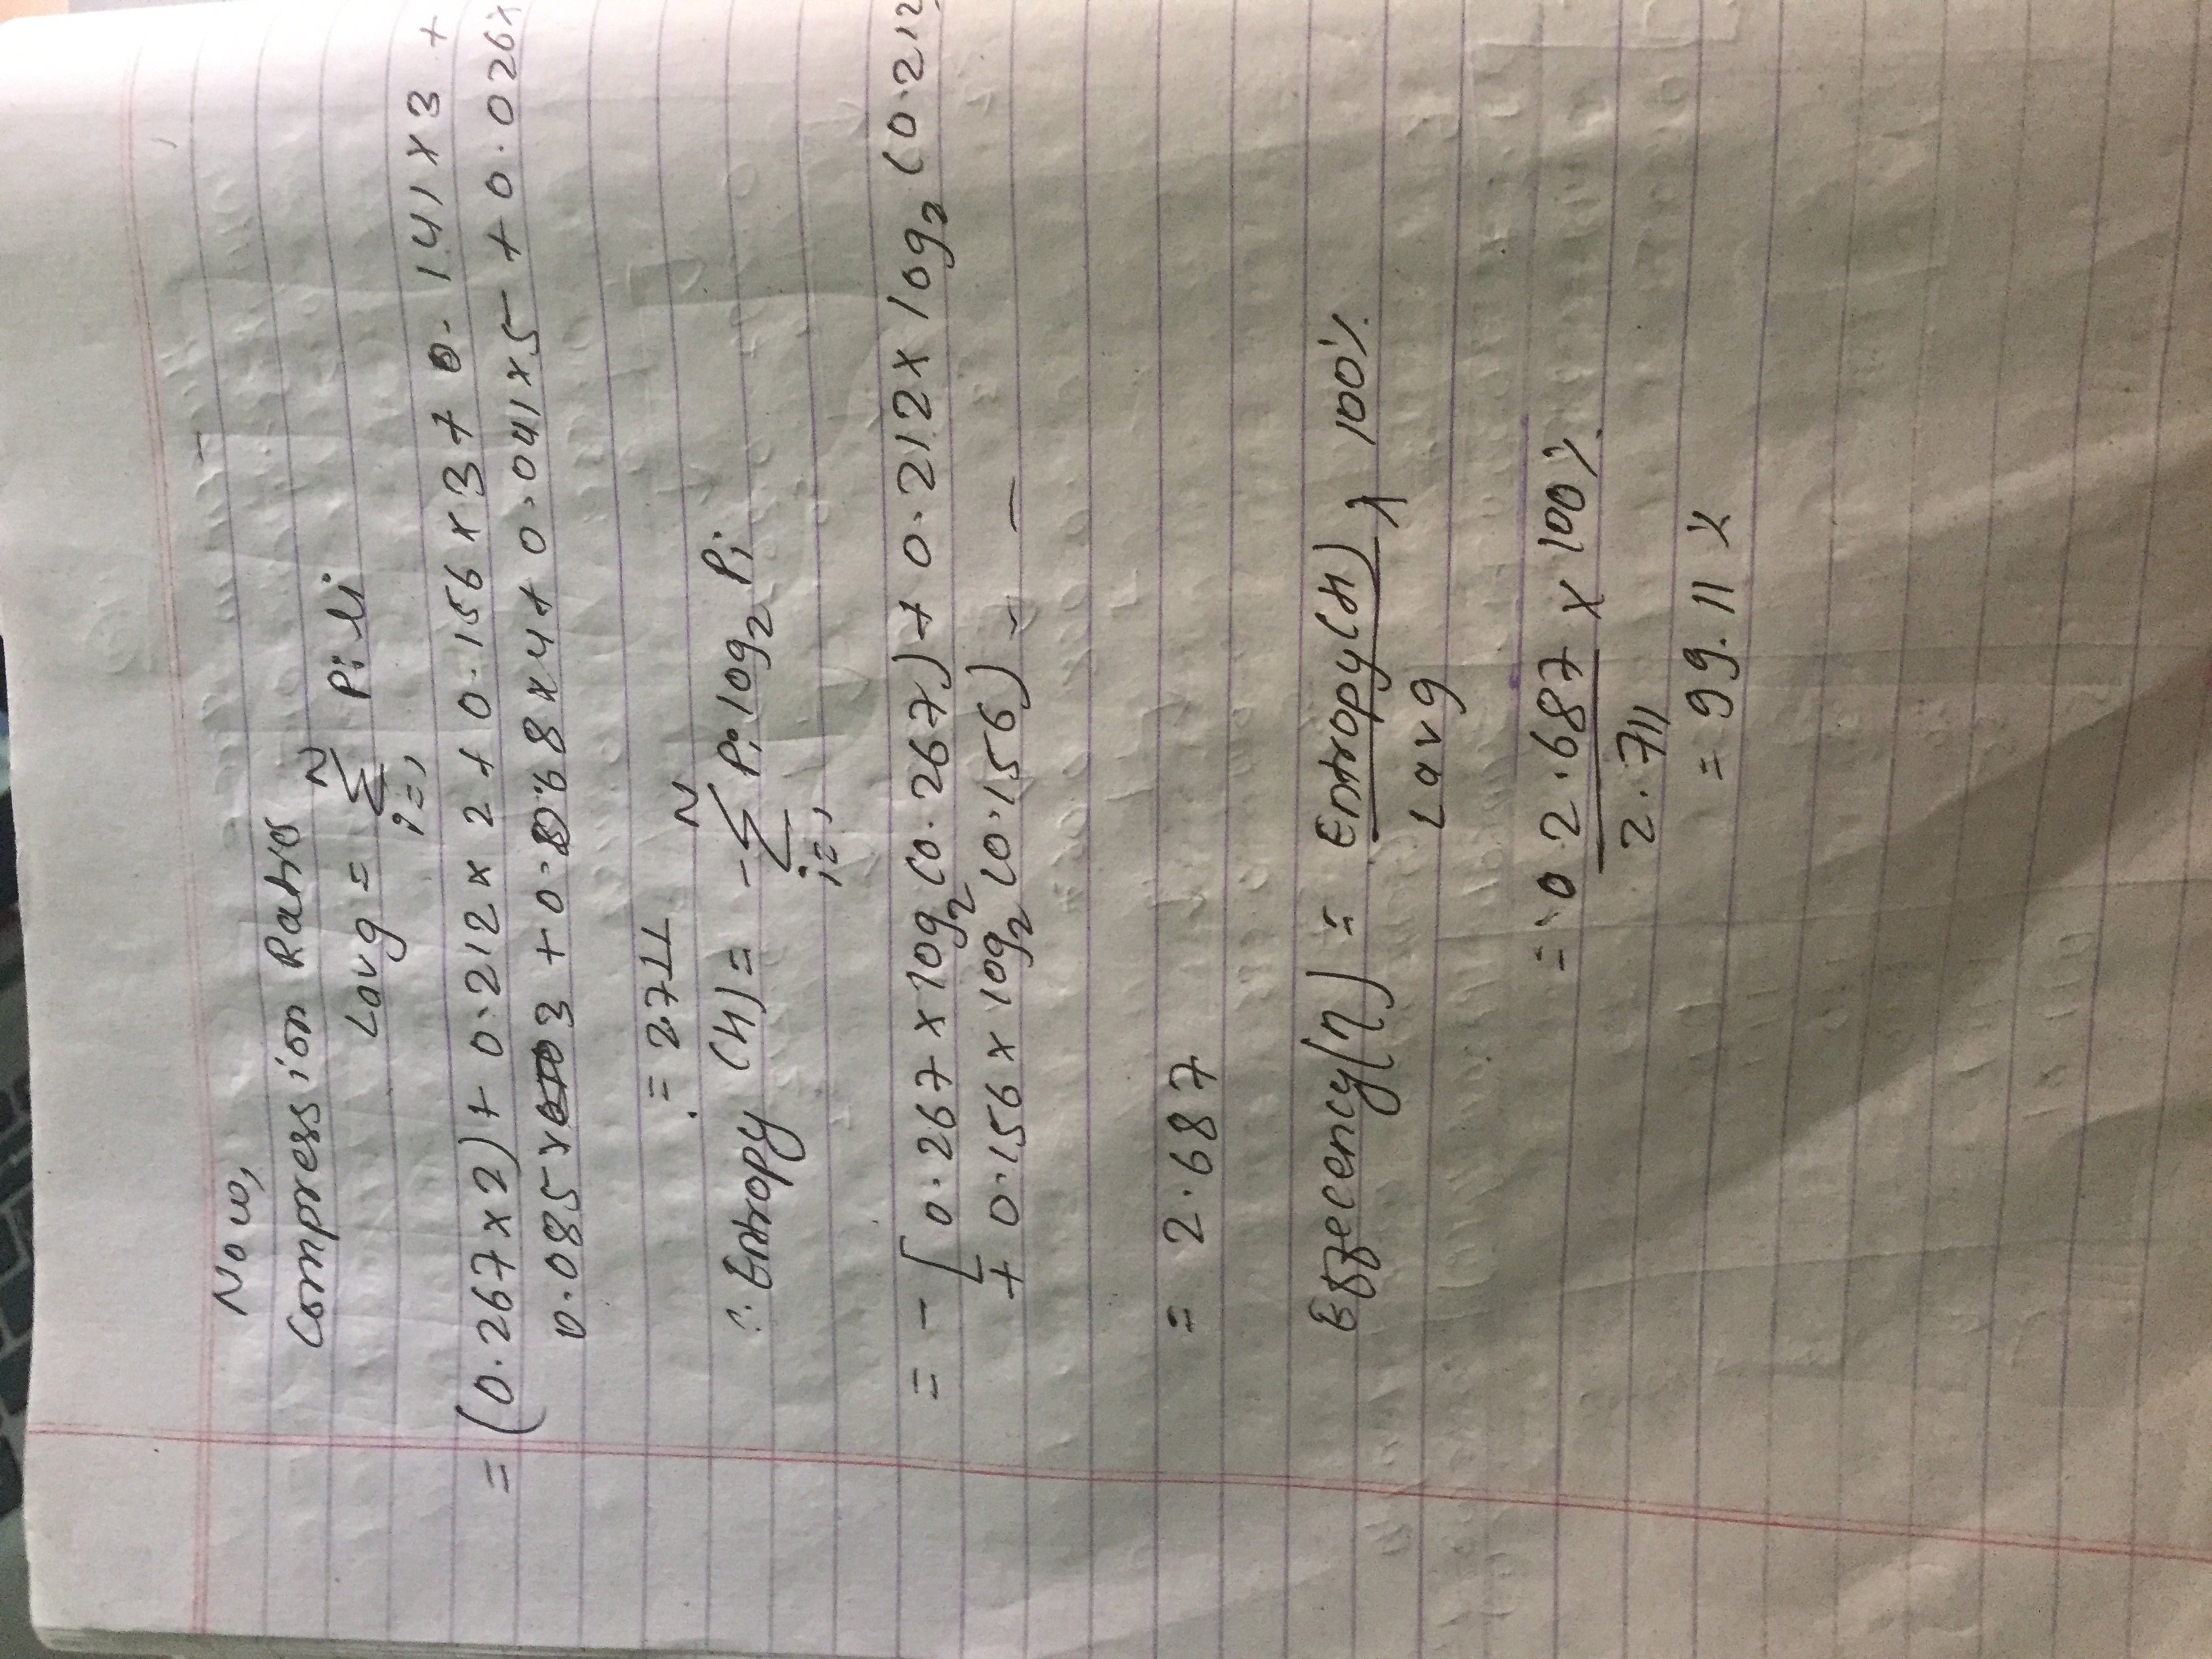 Now,
Compression Ratio
Lavg = N∑i=1 Pi li
= (0.267 x 2) + 0.212 x 2 + 0.156 x 3 + 0.141 x 3 +
0.085 x 3 + 0.068 x 4 + 0.041 x 5 + 0.026 x
= 2.711
∴ Entropy (H) = - N∑i=1 Pi log2 Pi
= - [0.267 x log2 (0.267) + 0.212 x log2 (0.212)
+ 0.156 x log2 (0.156) - -
= 2.687
Effecency (η) = Entropy (H) / Lavg x 100%
= 2.687 / 2.711 x 100%
= 99.11 %